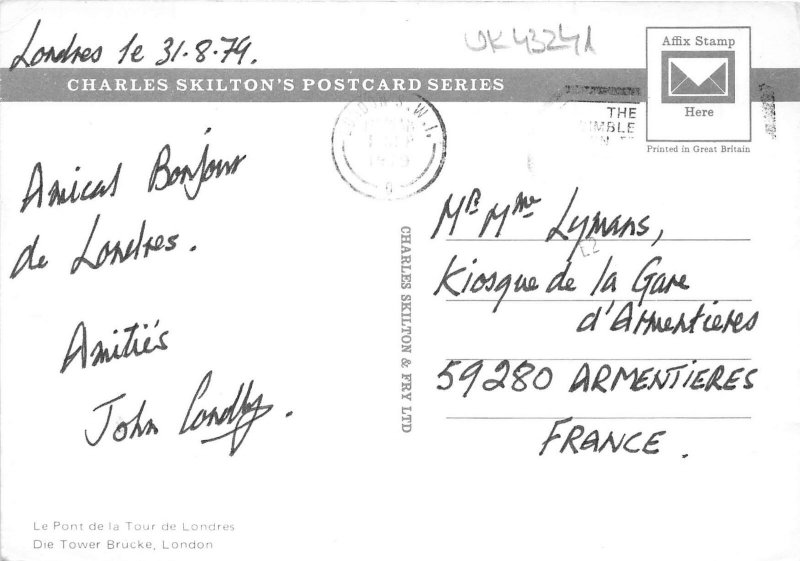 Londres le 31.8.79.
UK43241
CHARLES SKILTON'S POSTCARD SERIES
Affix Stamp
Here
Printed in Great Britain
S.W.1.
1979
THE
Amical Bonjour
de Londres.
Amitiés
John
CHARLES SKILTON & FRY LTD
Mr Mme Lymans,
L2
Kiosque de la Gare
d'Armentieres
59280 ARMENTIERES
FRANCE.
Le Pont de la Tour de Londres
Die Tower Brucke, London